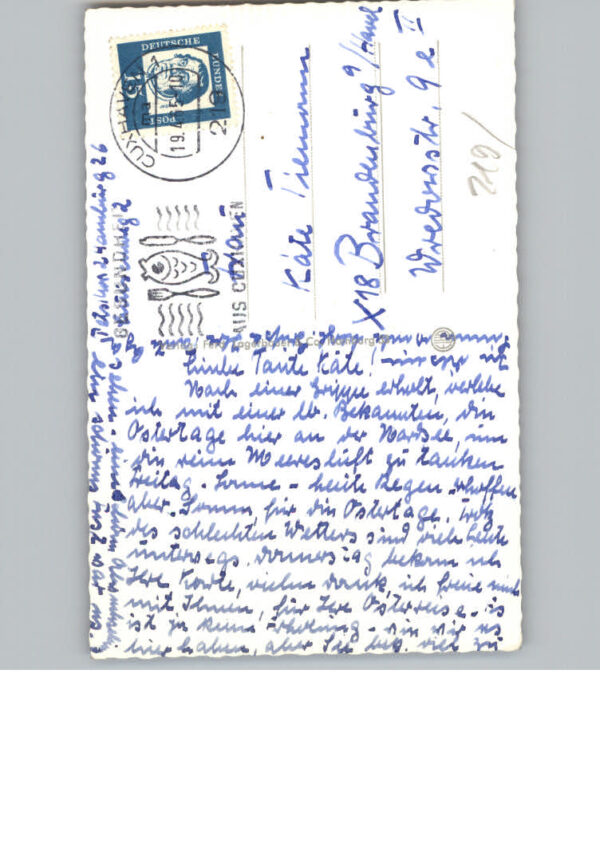 DEUTSCHE BUNDESPOST
15
CUXHAVEN
19.4.65-10
GESUNDHEIT
AUS CUXHAVEN
Frau
Käte Tiemann
X18 Brandenburg 9/Havel
Wredowstr. 9e II
219/
Liebe Tante Käte!
Nach einer Grippe erholt, verlebe
ich mit einer lb. Bekannten, die
Ostertage hier an der Nordsee, um
die reine Meeresluft zu tanken
Freitag - Sonne - heute Regen - erhoffen
aber Sonne, für die Ostertage. Trotz
des schlechten Wetters sind viele Leute
unterwegs. Donnerstag bekam ich
Ihre Karte, vielen Dank, ich freue mich
mit Ihnen, für Ihre Osterreise - es
ist ja keine Erholung - wie wir es
hier haben, aber Sie bek. viel zu
sehen
Hamburg 26